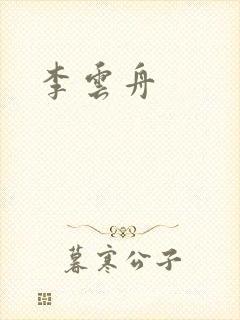 李雲舟
暮寒公子